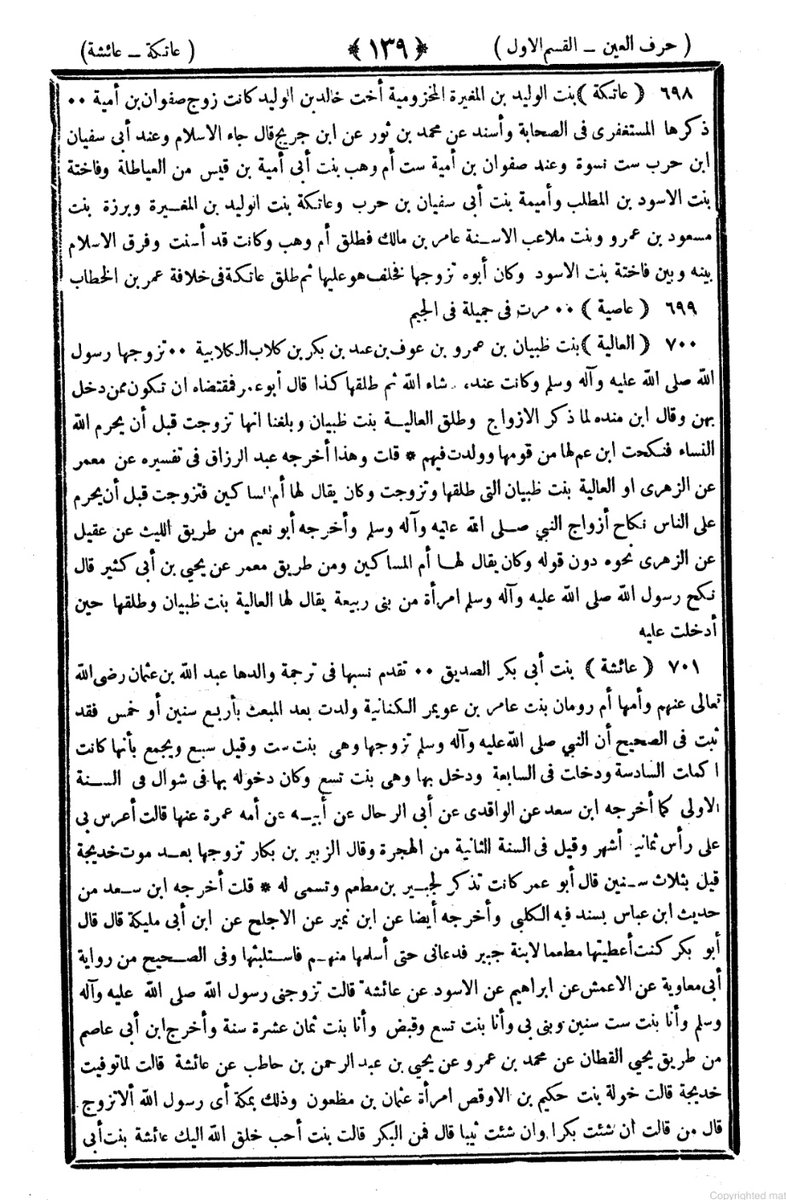 ( حرف العين – القسم الاول ) ﴿ ١٣٩ ﴾ ( عاتكة – عائشة )
٦٩٨ ( عاتكة ) بنت الوليد بن المغيرة المخزومية أخت خالد بن الوليد كانت زوج صفوان بن أمية ٠٠
ذكرها المستغفرى فى الصحابة وأسند عن محمد بن ثور عن ابن جريج قال جاء الاسلام وعند أبى سفيان
ابن حرب ست نسوة وعند صفوان بن أمية ست أم وهب بنت أبى أمية بن قيس من العياطلة وفاختة
بنت الاسود بن المطلب وأميمة بنت أبى سفيان بن حرب وعاتكة بنت الوليد بن المغيرة وبرزة بنت
مسعود بن عمرو وبنت ملاعب الاسنة عامر بن مالك فطلق أم وهب وكانت قد أسنت وفرق الاسلام
بينه وبين فاختة بنت الاسود وكان أبوه تزوجها فخلف هو عليها ثم طلق عاتكة فى خلافة عمر بن الخطاب
٦٩٩ ( عاصية ) ٠٠ مرت فى جميلة فى الجيم
٧٠٠ ( العالية ) بنت ظبيان بن عمرو بن عوف بن عبد بن بكر بن كلاب الكلابية ٠٠ تزوجها رسول
الله صلى الله عليه وآله وسلم وكانت عنده شاء الله ثم طلقها كذا قال أبو عمر فمقتضاه ان تكون ممن دخل
بهن وقال ابن منده لما ذكر الازواج وطلق العالية بنت ظبيان وبلغنا انها تزوجت قبل أن يحرم الله
النساء فنكحت ابن عم لها من قومها وولدت فيهم * قلت وهذا أخرجه عبد الرزاق فى تفسيره عن معمر
عن الزهرى او العالية بنت ظبيان التى طلقها وتزوجت وكان يقال لها أم المساكين فتزوجت قبل أن يحرم
على الناس نكاح أزواج النبي صلى الله عليه وآله وسلم وأخرجه أبو نعيم من طريق الليث عن عقيل
عن الزهرى نحوه دون قوله وكان يقال لها أم المساكين ومن طريق معمر عن يحيي بن أبى كثير قال
نكح رسول الله صلى الله عليه وآله وسلم امرأة من بنى ربيعة يقال لها العالية بنت ظبيان وطلقها حين
أدخلت عليه
٧٠١ ( عائشة ) بنت أبى بكر الصديق ٠٠ تقدم نسبها فى ترجمة والدها عبد الله بن عثمان رضى الله
تعالى عنهم وأمها أم رومان بنت عامر بن عويمر الكنانية ولدت بعد المبعث بأربع سنين أو خمس فقد
ثبت فى الصحيح أن النبي صلى الله عليه وآله وسلم تزوجها وهى بنت ست وقيل سبع ويجمع بأنها كانت
اكملت السادسة ودخلت فى السابعة ودخل بها وهى بنت تسع وكان دخوله بها فى شوال فى السنة
الاولى كما أخرجه ابن سعد عن الواقدى عن أبى الرحال عن أبيه عن أمه عمرة عنها قالت أعرس بى
على رأس ثمانية أشهر وقيل فى السنة الثانية من الهجرة وقال الزبير بن بكار تزوجها بعد موت خديجة
قيل بثلاث سنين قال أبو عمر كانت تذكر لجبير بن مطعم وتسمى له * قلت أخرجه ابن سعد من
حديث ابن عباس بسند فيه الكلبى وأخرجه أيضا عن ابن نمير عن الاجلح عن ابن أبى مليكة قال قال
أبو بكر كنت أعطيتها مطعما لابنه جبير فدعانى حتى أسلها منهم فاستلبثها وفى الصحيح من رواية
أبى معاوية عن الاعمش عن ابراهيم عن الاسود عن عائشة قالت تزوجنى رسول الله صلى الله عليه وآله
وسلم وأنا بنت ست سنين وبنى بى وأنا بنت تسع وقبض وأنا بنت ثمان عشرة سنة وأخرج ابن أبى عاصم
من طريق يحيي القطان عن محمد بن عمرو عن يحيي بن عبد الرحمن بن حاطب عن عائشة قالت لما توفيت
خديجة قالت خولة بنت حكيم بن الاوقص امرأة عثمان بن مظعون وذلك بمكة أى رسول الله ألا تزوج
قال من قالت ان شئت بكرا وان شئت ثيبا قال فمن البكر قالت بنت أحب خلق الله اليك عائشة بنت أبى
Copyrighted mat